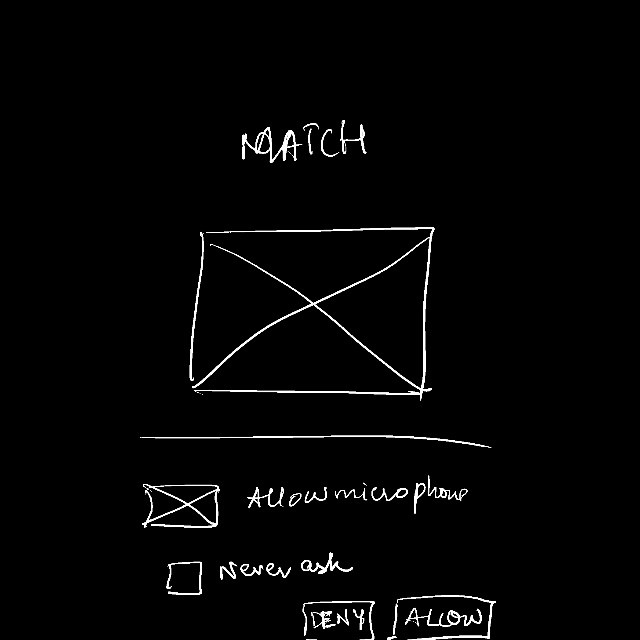 MATCH
Allow microphone
Never ask
DENY ALLOW